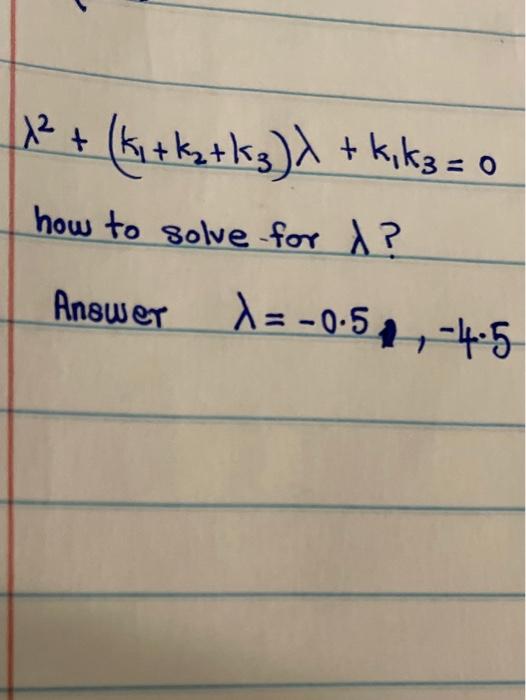 λ² + (k₁+k₂+k₃)λ + k₁k₃ = 0
how to solve for λ?
Answer λ = -0.5 , -4.5